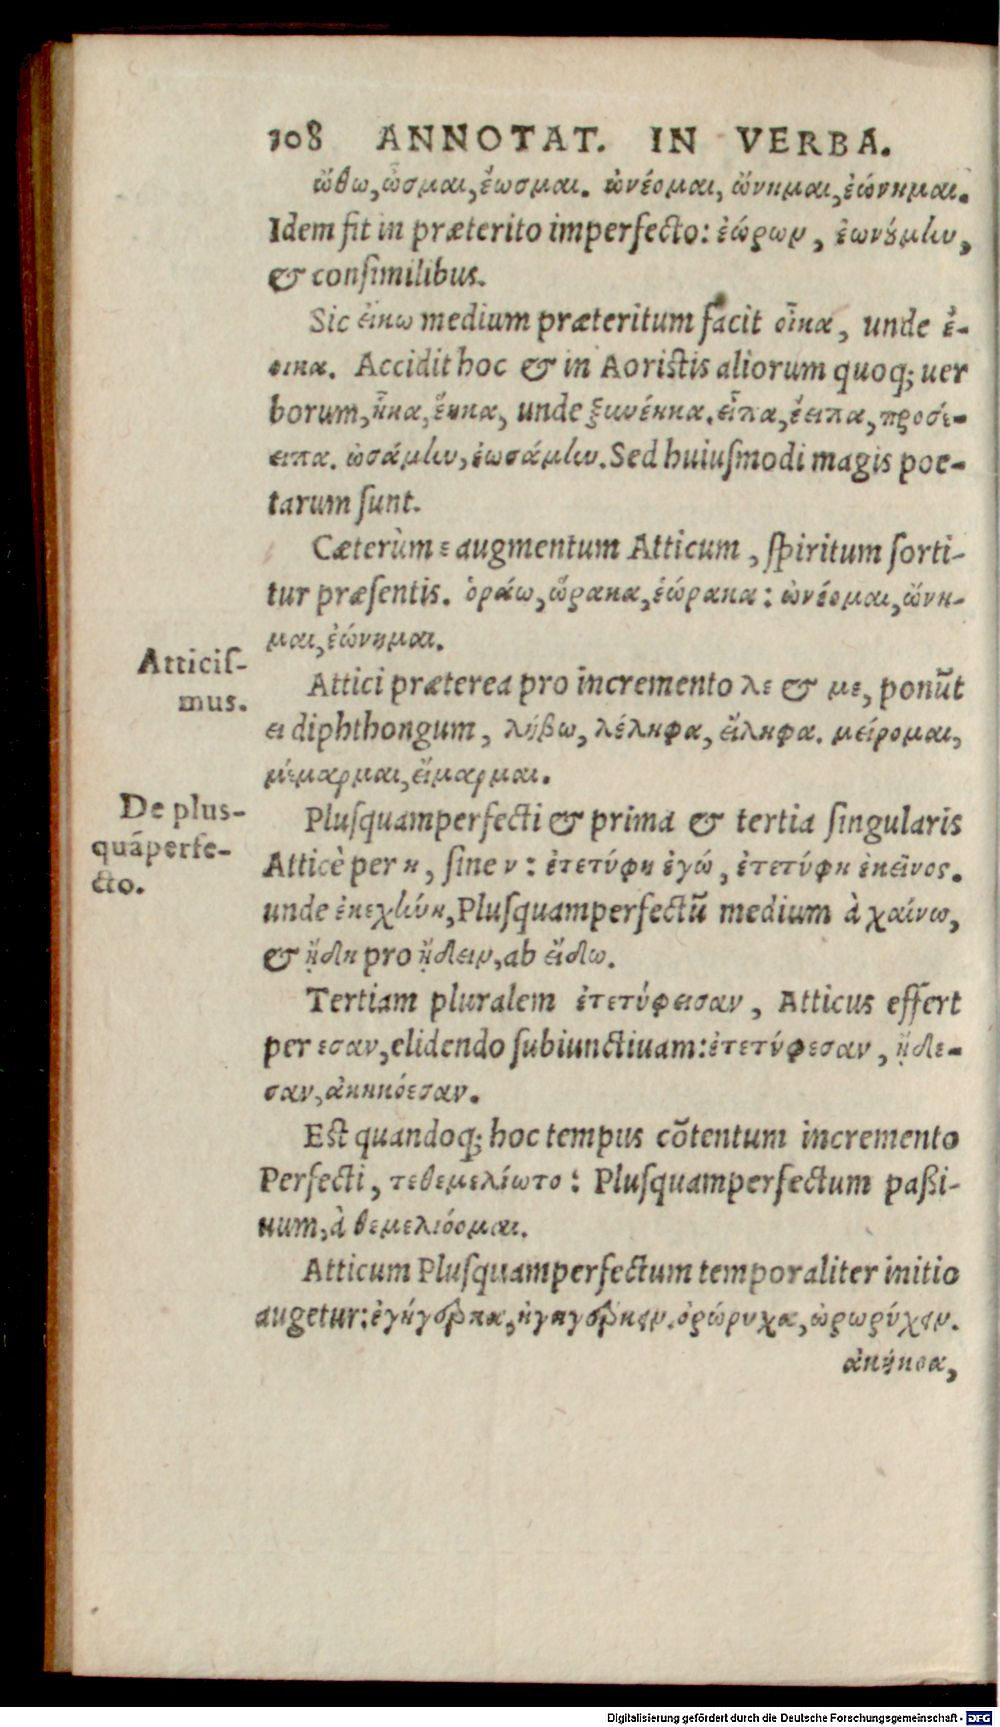 108 ANNOTAT. IN VERBA.
ὤθω, ὦσμαι, ἔωσμαι. ὠνέομαι, ὤνημαι, ἐώνημαι.
Idem fit in præterito imperfecto: ἐώρων, ἐωνούμην,
& conſimilibus.
Sic εἴκω medium præteritum facit οἶκα, unde ἔ-
οικα. Accidit hoc & in Aoriſtis aliorum quoq; uer
borum, ἧκα, ἕηκα, unde ξυνέηκα. εἶπα, ἔειπα, προσέ-
ειπα. ὠσάμην, ἐωσάμην. Sed huiuſmodi magis poe-
tarum ſunt.
Cæterùm ε augmentum Atticum, ſpiritum ſorti-
tur præſentis. ὁράω, ὥρακα, ἑώρακα: ὠνέομαι, ὤνη-
μαι, ἐώνημαι.
Atticiſ-
mus.
Attici præterea pro incremento λε & με, ponūt
ει diphthongum, λήβω, λέληφα, εἴληφα. μείρομαι,
μέμαρμαι, εἵμαρμαι.
De plus-
quāperfe-
cto.
Pluſquamperfecti & prima & tertia ſingularis
Atticè per η, ſine ν: ἐτετύφη ἐγώ, ἐτετύφη ἐκεῖνος.
unde ἐκεχήνη, Pluſquamperfectū medium à χαίνω,
& ᾔδη pro ᾔδειν, ab εἴδω.
Tertiam pluralem ἐτετύφεισαν, Atticus effert
per εσαν, elidendo ſubiunctiuam: ἐτετύφεσαν, ᾔδε-
σαν, ἀκηκόεσαν.
Eſt quandoq; hoc tempus cōtentum incremento
Perfecti, τεθεμελίωτο: Pluſquamperfectum paßi-
uum, à θεμελιόομαι.
Atticum Pluſquamperfectum temporaliter initio
augetur: ἐγήγορκα, ἠγηγόρκειν. ὀρώρυχα, ὠρωρύχειν.
ἀκήκοα,
Digitalisierung gefördert durch die Deutsche Forschungsgemeinschaft - DFG